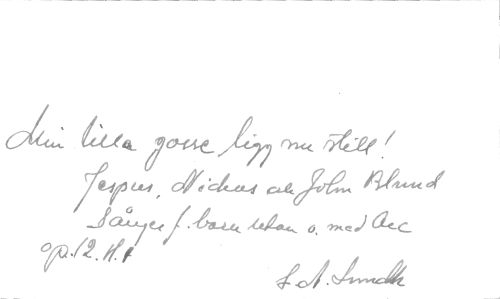 Min lilla gosse ligg nu still!
Jespers, Nickus ak John Blund
Sånger f. barn utan o. med Acc
op. 12. H. 1